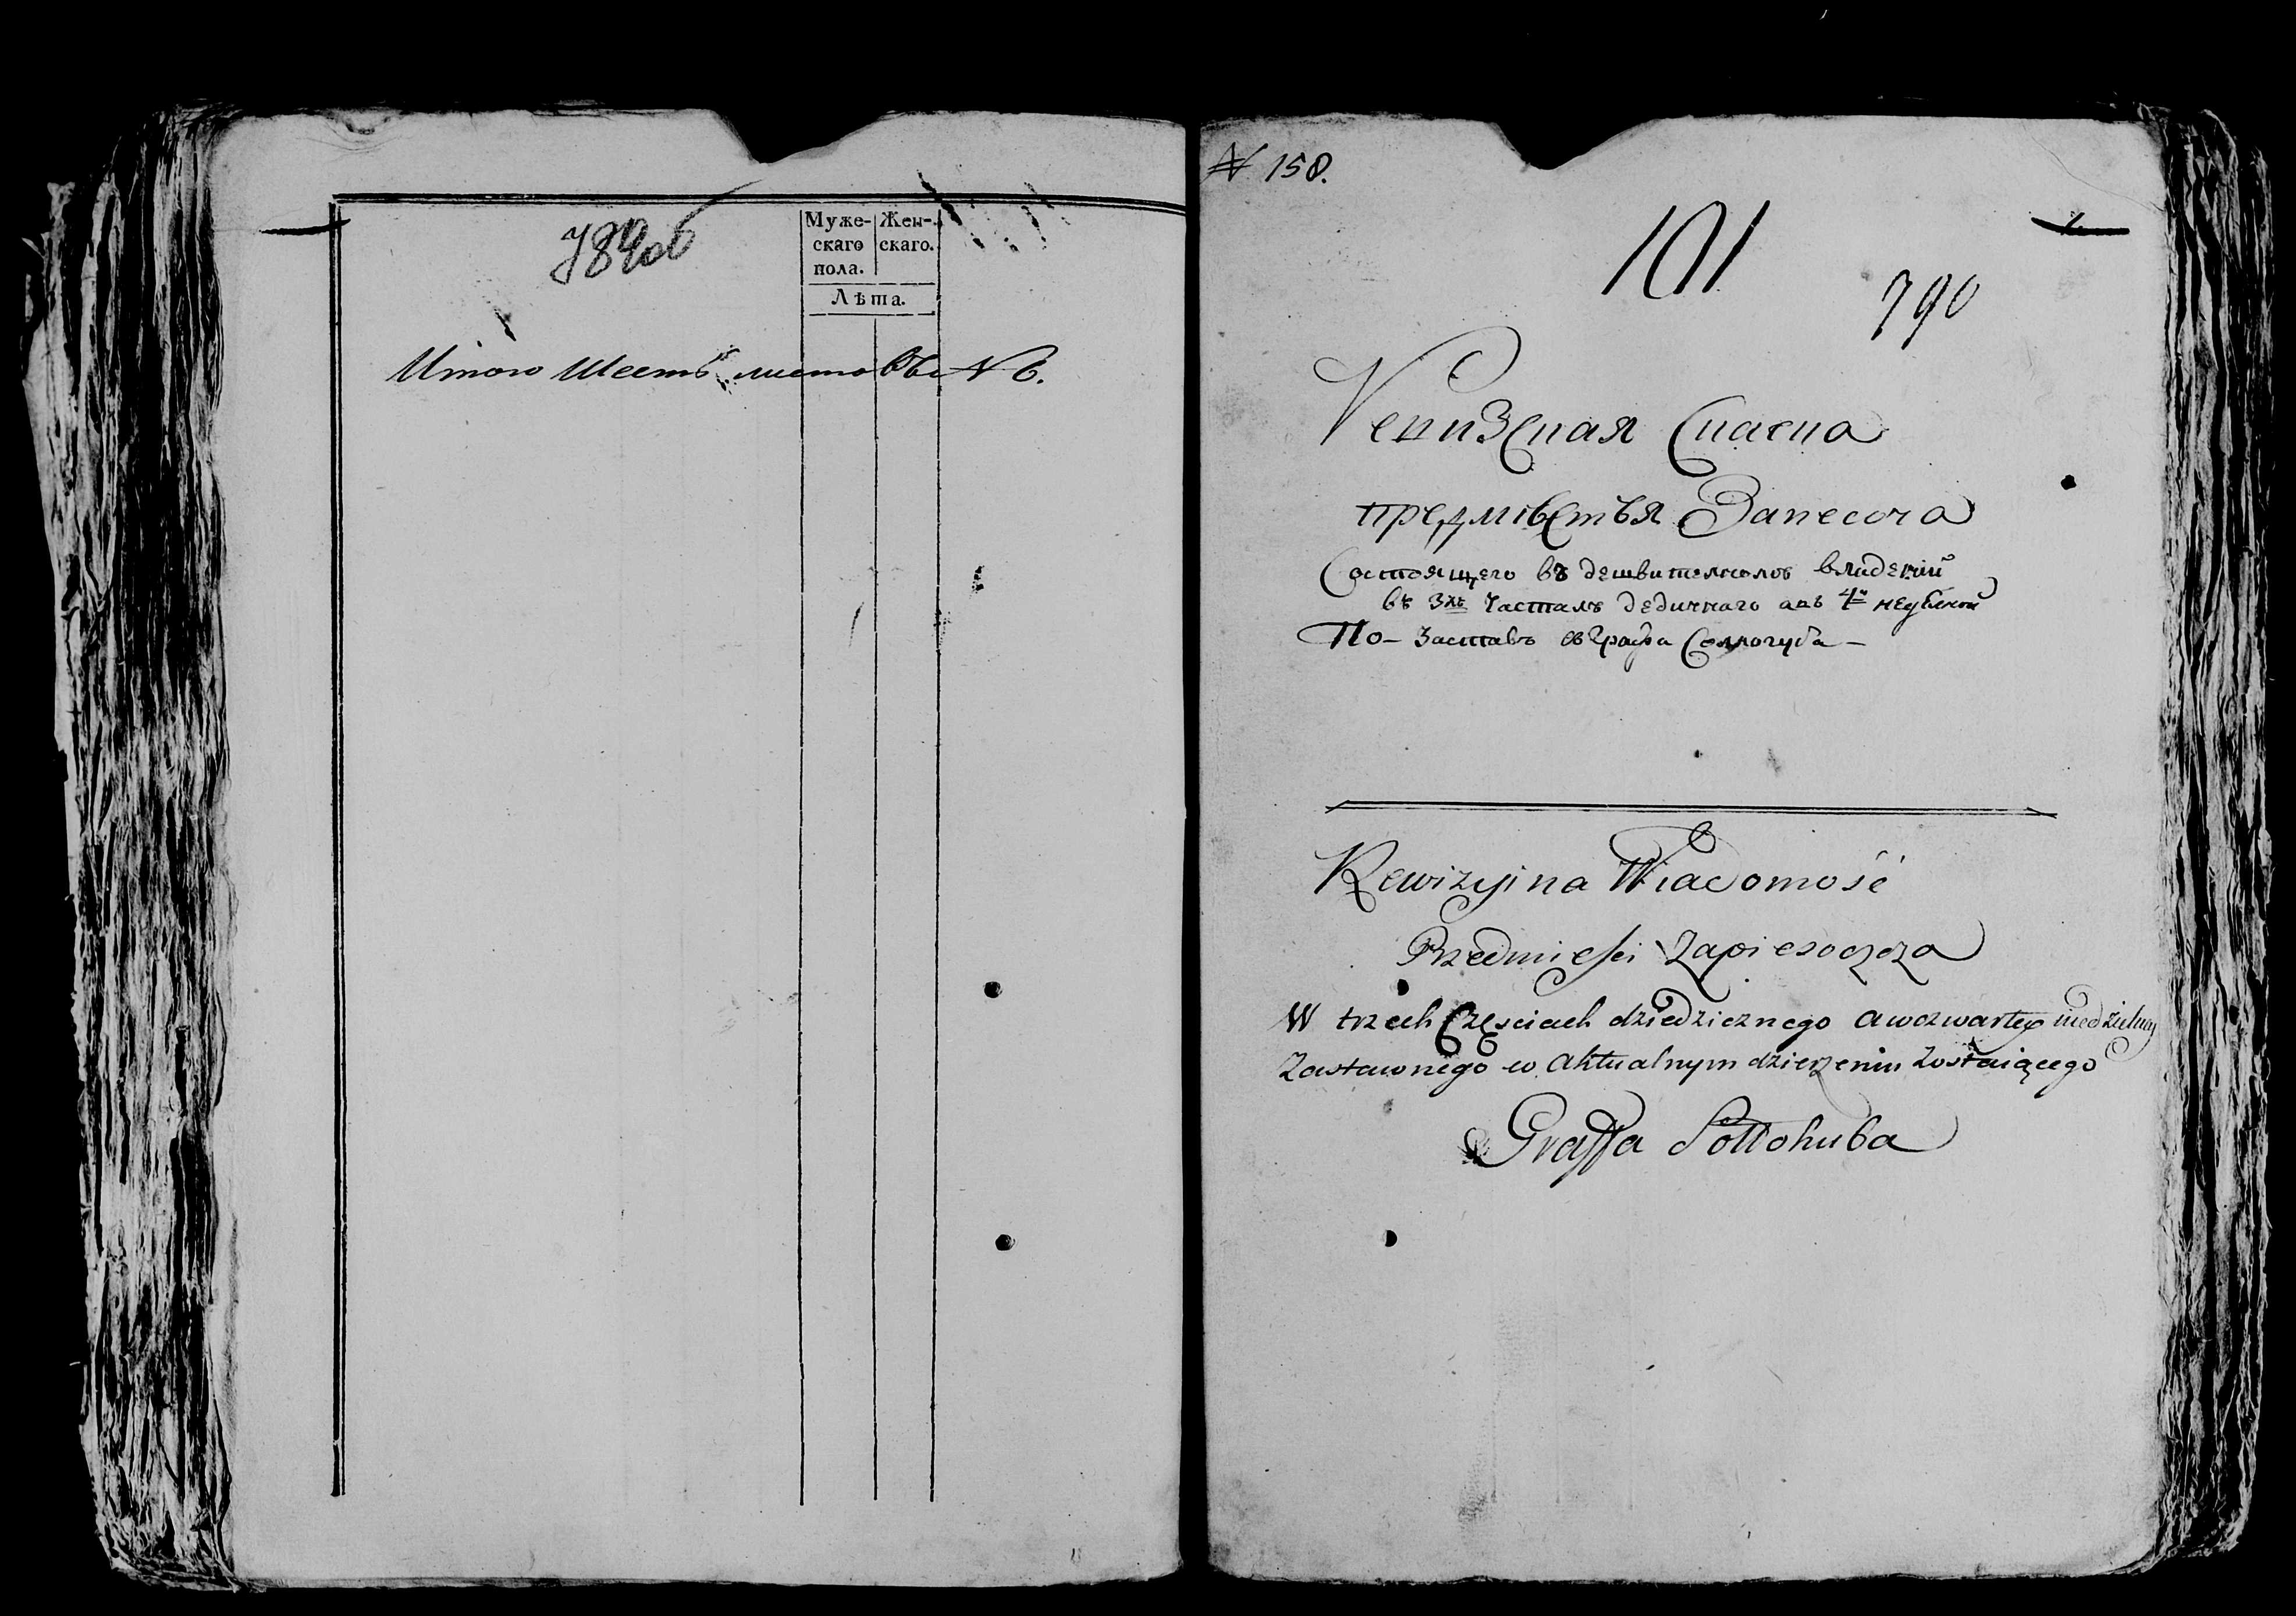 789об
Муже-
скаго
пола.
Жен-
скаго.
Лѣта.
Итого Шесть листовъ N 6.
N 158.
101
790
Ревизская Сказка
предмѣстья Запесоча
Состоящего въ
въ 3хъ Частяхъ дедичнаго 4й
По Заставѣ Графа Соллогуба
Rewizyjna Wiadomość
Przedmieści Zapiesocza
W trzech Częściach dziedzicznego a w czwartey
Zastawnego w aktualnym dzierzeniu Zostaiącego
Graffa Sołłohuba